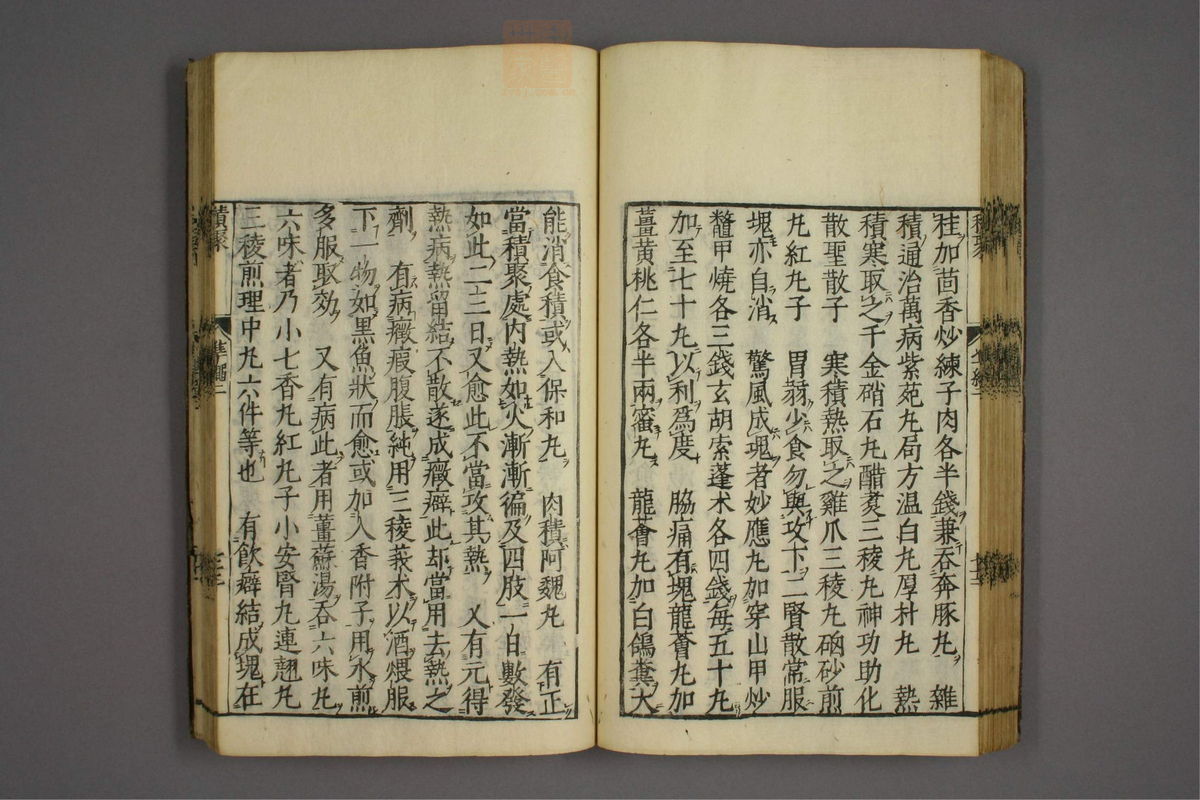 桂加茴香炒練子肉各半錢兼吞奔豚九　雜
積通治萬病紫苑九局方温白九厚朴九　熱
積寒取之千金硝石九醋煑三稜九神功助化
散聖散子　寒積熱取之雞爪三稜九硇砂煎
九紅九子　胃弱少食勿與攻下二賢散常服
塊亦自消　驚風成塊者妙應九加穿山甲炒
鼈甲燒各三錢玄胡索蓬术各四錢每五十九
加至七十九以利爲度　脇痛有塊龍薈九加
薑黄桃仁各半兩蜜九　龍薈九加白鴿糞大
能消食積或入保和九　肉積阿魏九　有正
當積聚處内熱如火漸漸徧及四肢一日數發
如此二三日又愈此不當攻其熱　又有元得
熱病熱留結不散遂成癥癖此却當用去熱之
劑　有病癥瘕腹脹純用三稜莪术以酒煨服
下一物如黒魚狀而愈或加入香附子用水煎
多服取効　又有病此者用薑蘇湯吞六味九
六味者乃小七香九紅九子小安腎九連翹九
三稜煎理中九六件等也　有飲癖結成塊在
積聚